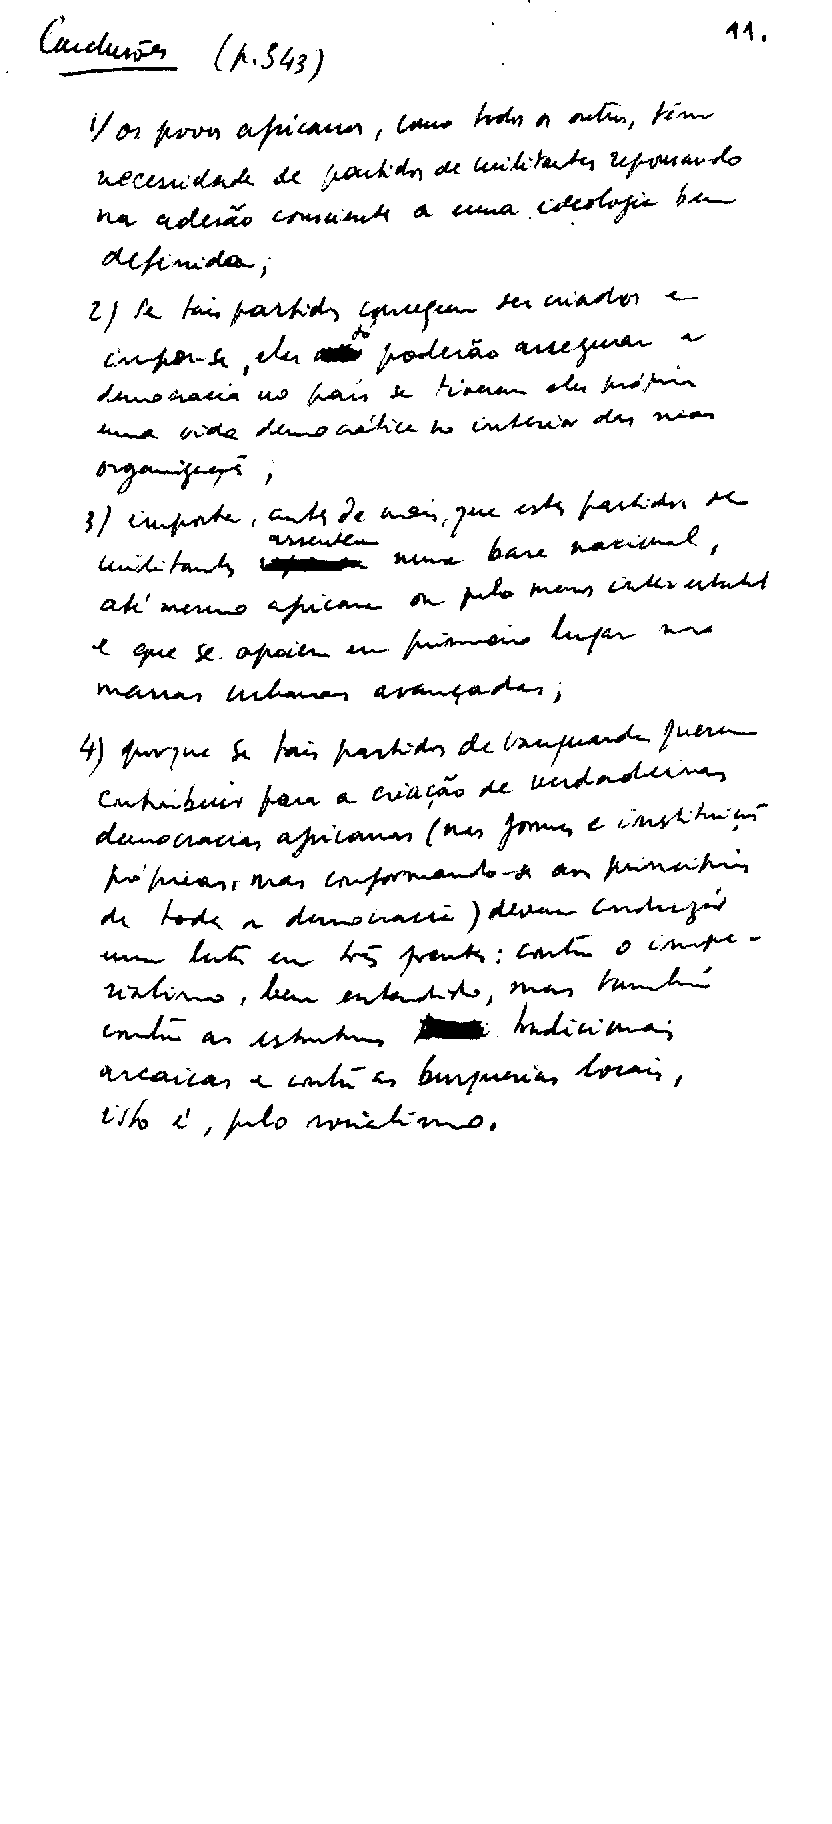 11.
Conclusões (p. 343)
1/ os povos africanos, como todos os outros, têm
necessidade de partidos de militantes repousando
na adesão consciente a uma ideologia bem
definida;
2) Se tais partidos conseguem ser criados e
impor-se, eles só poderão assegurar a
democracia no país se tiverem eles próprios
uma vida democrática no interior das suas
organizações;
3) importa, antes de mais, que estes partidos de
militantes assentem numa base nacional,
até mesmo africana ou pelo menos interestatal
e que se apoiem em primeiro lugar nas
massas urbanas avançadas;
4) porque se tais partidos de vanguarda querem
contribuir para a criação de verdadeiras
democracias africanas (nas formas e instituições
próprias, mas conformando-se aos princípios
de toda a democracia) devem conduzir
uma luta em três frentes: contra o impe-
rialismo, bem entendido, mas também
contra as estruturas tradicionais
arcaicas e contra as burguesias locais,
isto é, pelo socialismo.